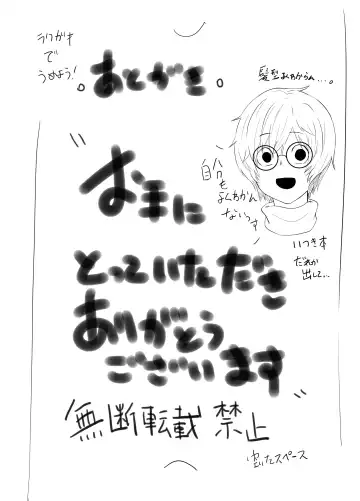 ラクガキ
で
うめよう!
。あとがき。
髪型よくわからん…。
自分も
よくわかん
ないっす
"お手に
とっていただき
ありがとう
ございます"
いつき本
だれか
出して…
無断転載 禁止
空いたスペース